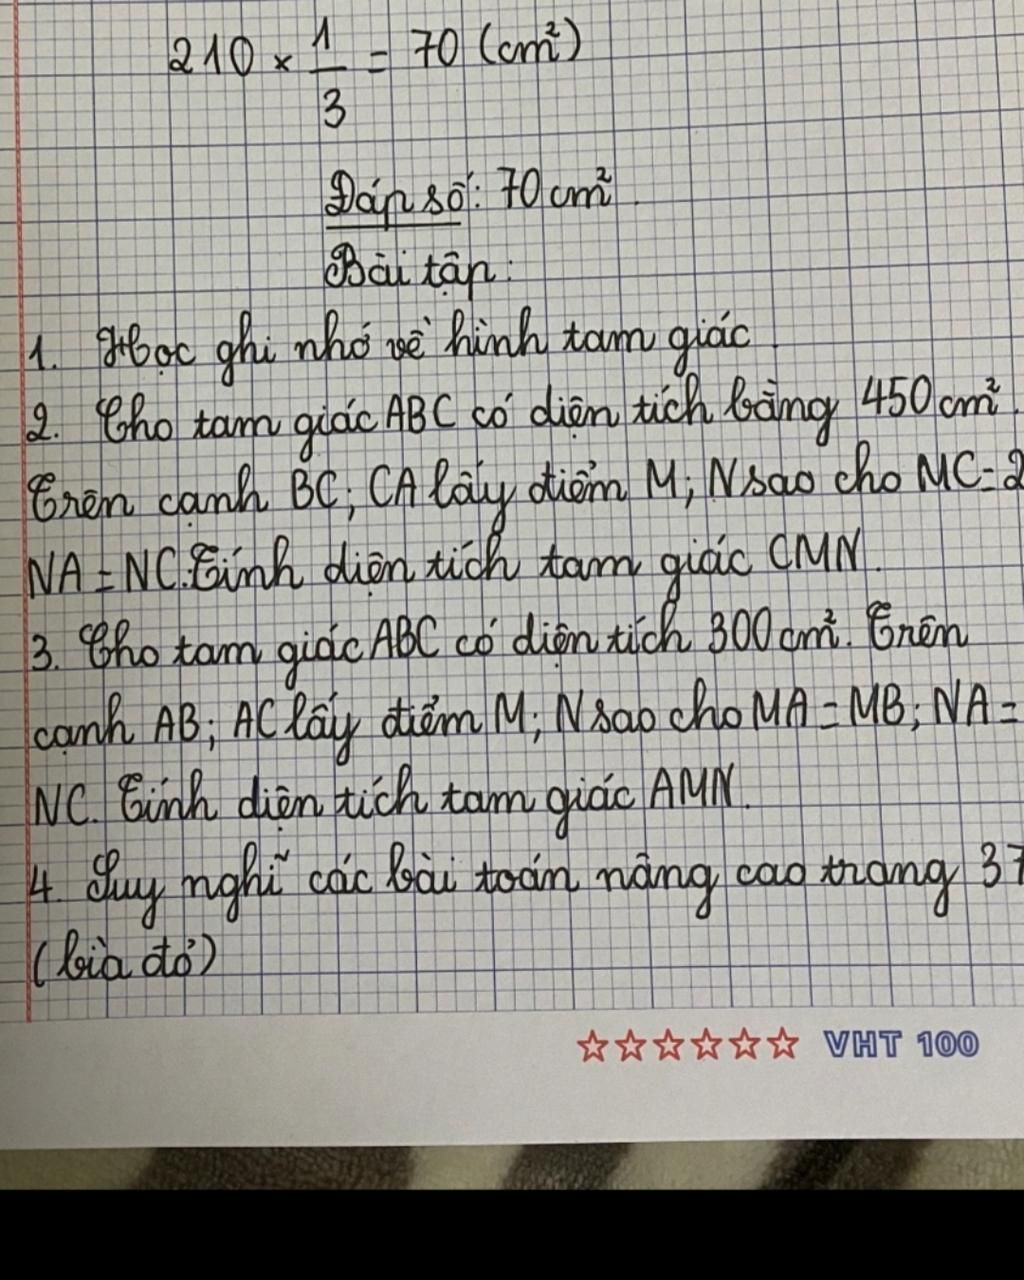 210 × 1/3 = 70 (cm²)
Đáp số: 70 cm²
Bài tập:
1. Học ghi nhớ về hình tam giác.
2. Cho tam giác ABC có diện tích bằng 450 cm².
Trên cạnh BC; CA lấy điểm M; N sao cho MC=2
NA = NC. Tính diện tích tam giác CMN.
3. Cho tam giác ABC có diện tích 300 cm². Trên
cạnh AB; AC lấy điểm M; N sao cho MA = MB; NA =
NC. Tính diện tích tam giác AMN.
4. Suy nghĩ các bài toán nâng cao trang 37
(bìa đỏ)
VHT 100